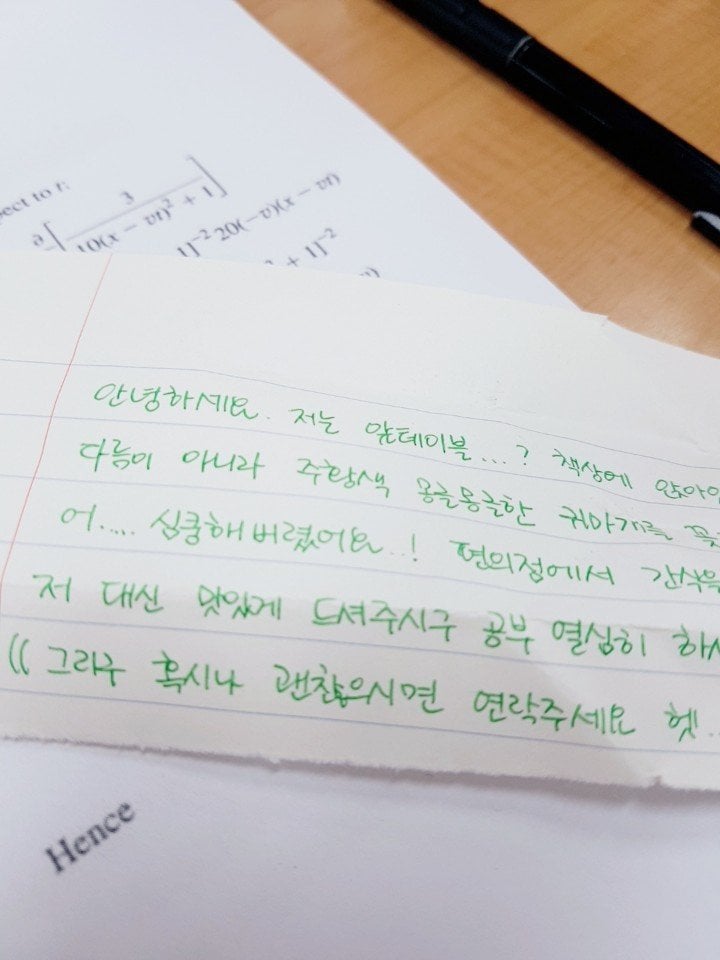 pect to t:
∂[3 / 10(x − vt)² + 1]
1]⁻² 20(−v)(x − vt)
+ 1]⁻²
안녕하세요. 저는 앞테이블...? 책상에
다름이 아니라 주황색 몽글몽글한 귀마개를
어.... 심쿵해버렸어요..! 편의점에서 간식을
저 대신 맛있게 드셔주시구 공부 열심히
(( 그리구 혹시나 괜찮으시면 연락주세요 헷..
Hence